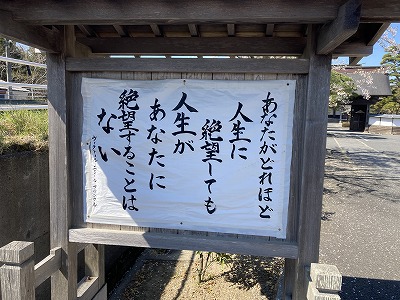 あなたがどれほど
人生に
絶望しても
人生が
あなたに
絶望することは
ない